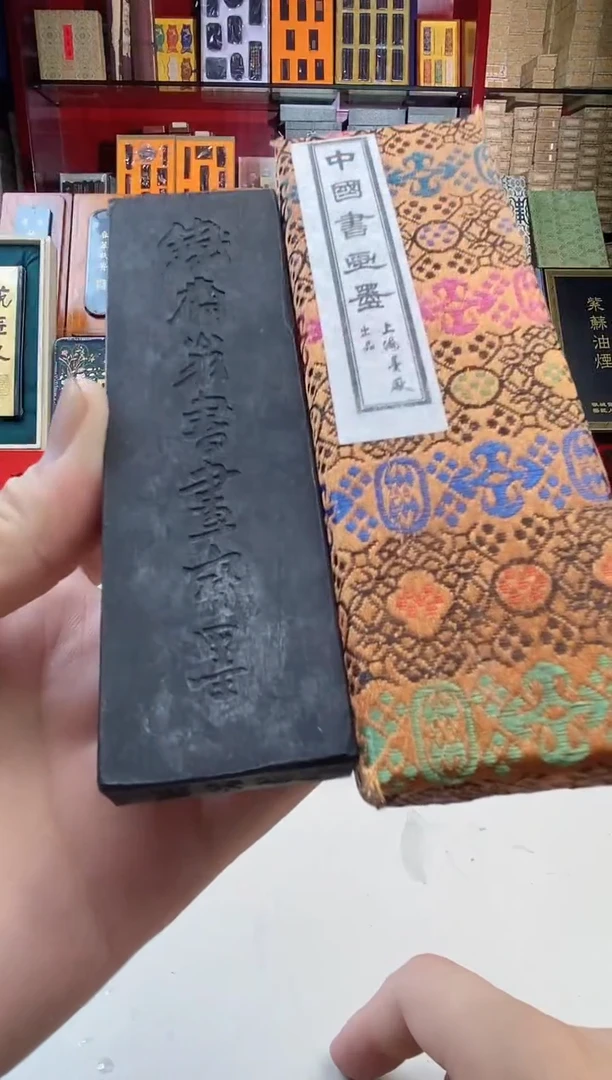 鐵齋翁書畫寶墨
中國書画墨
上海墨厰
出品
紫蘇油煙